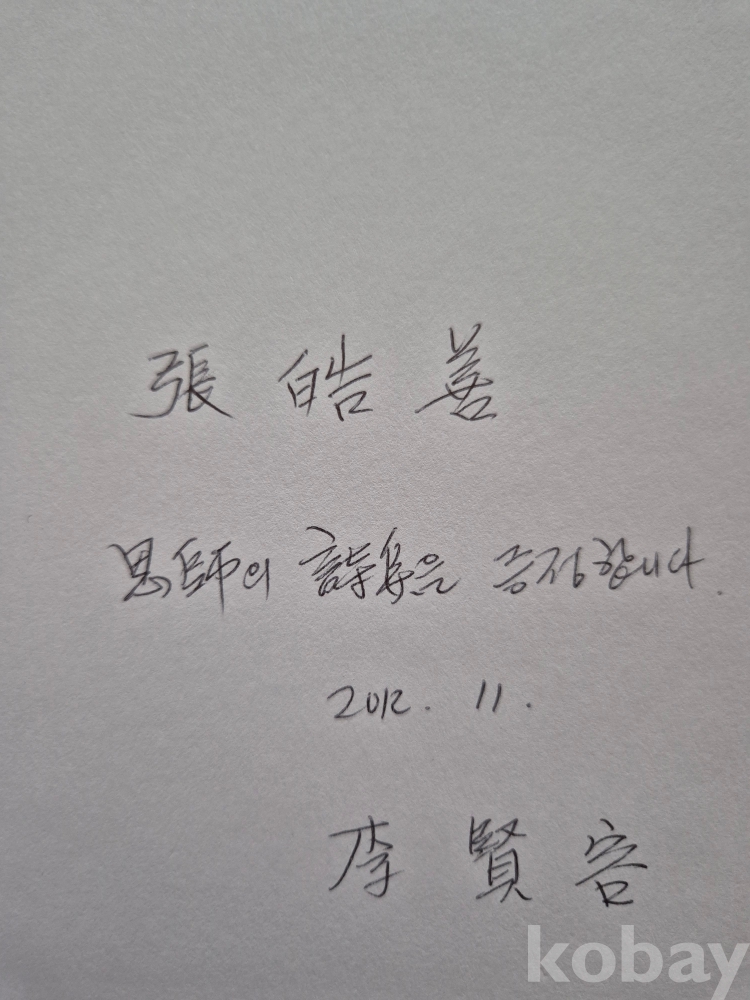 張 皓 善
恩師의 詩集을 증정합니다.
2012. 11.
李 賢 容
kobay